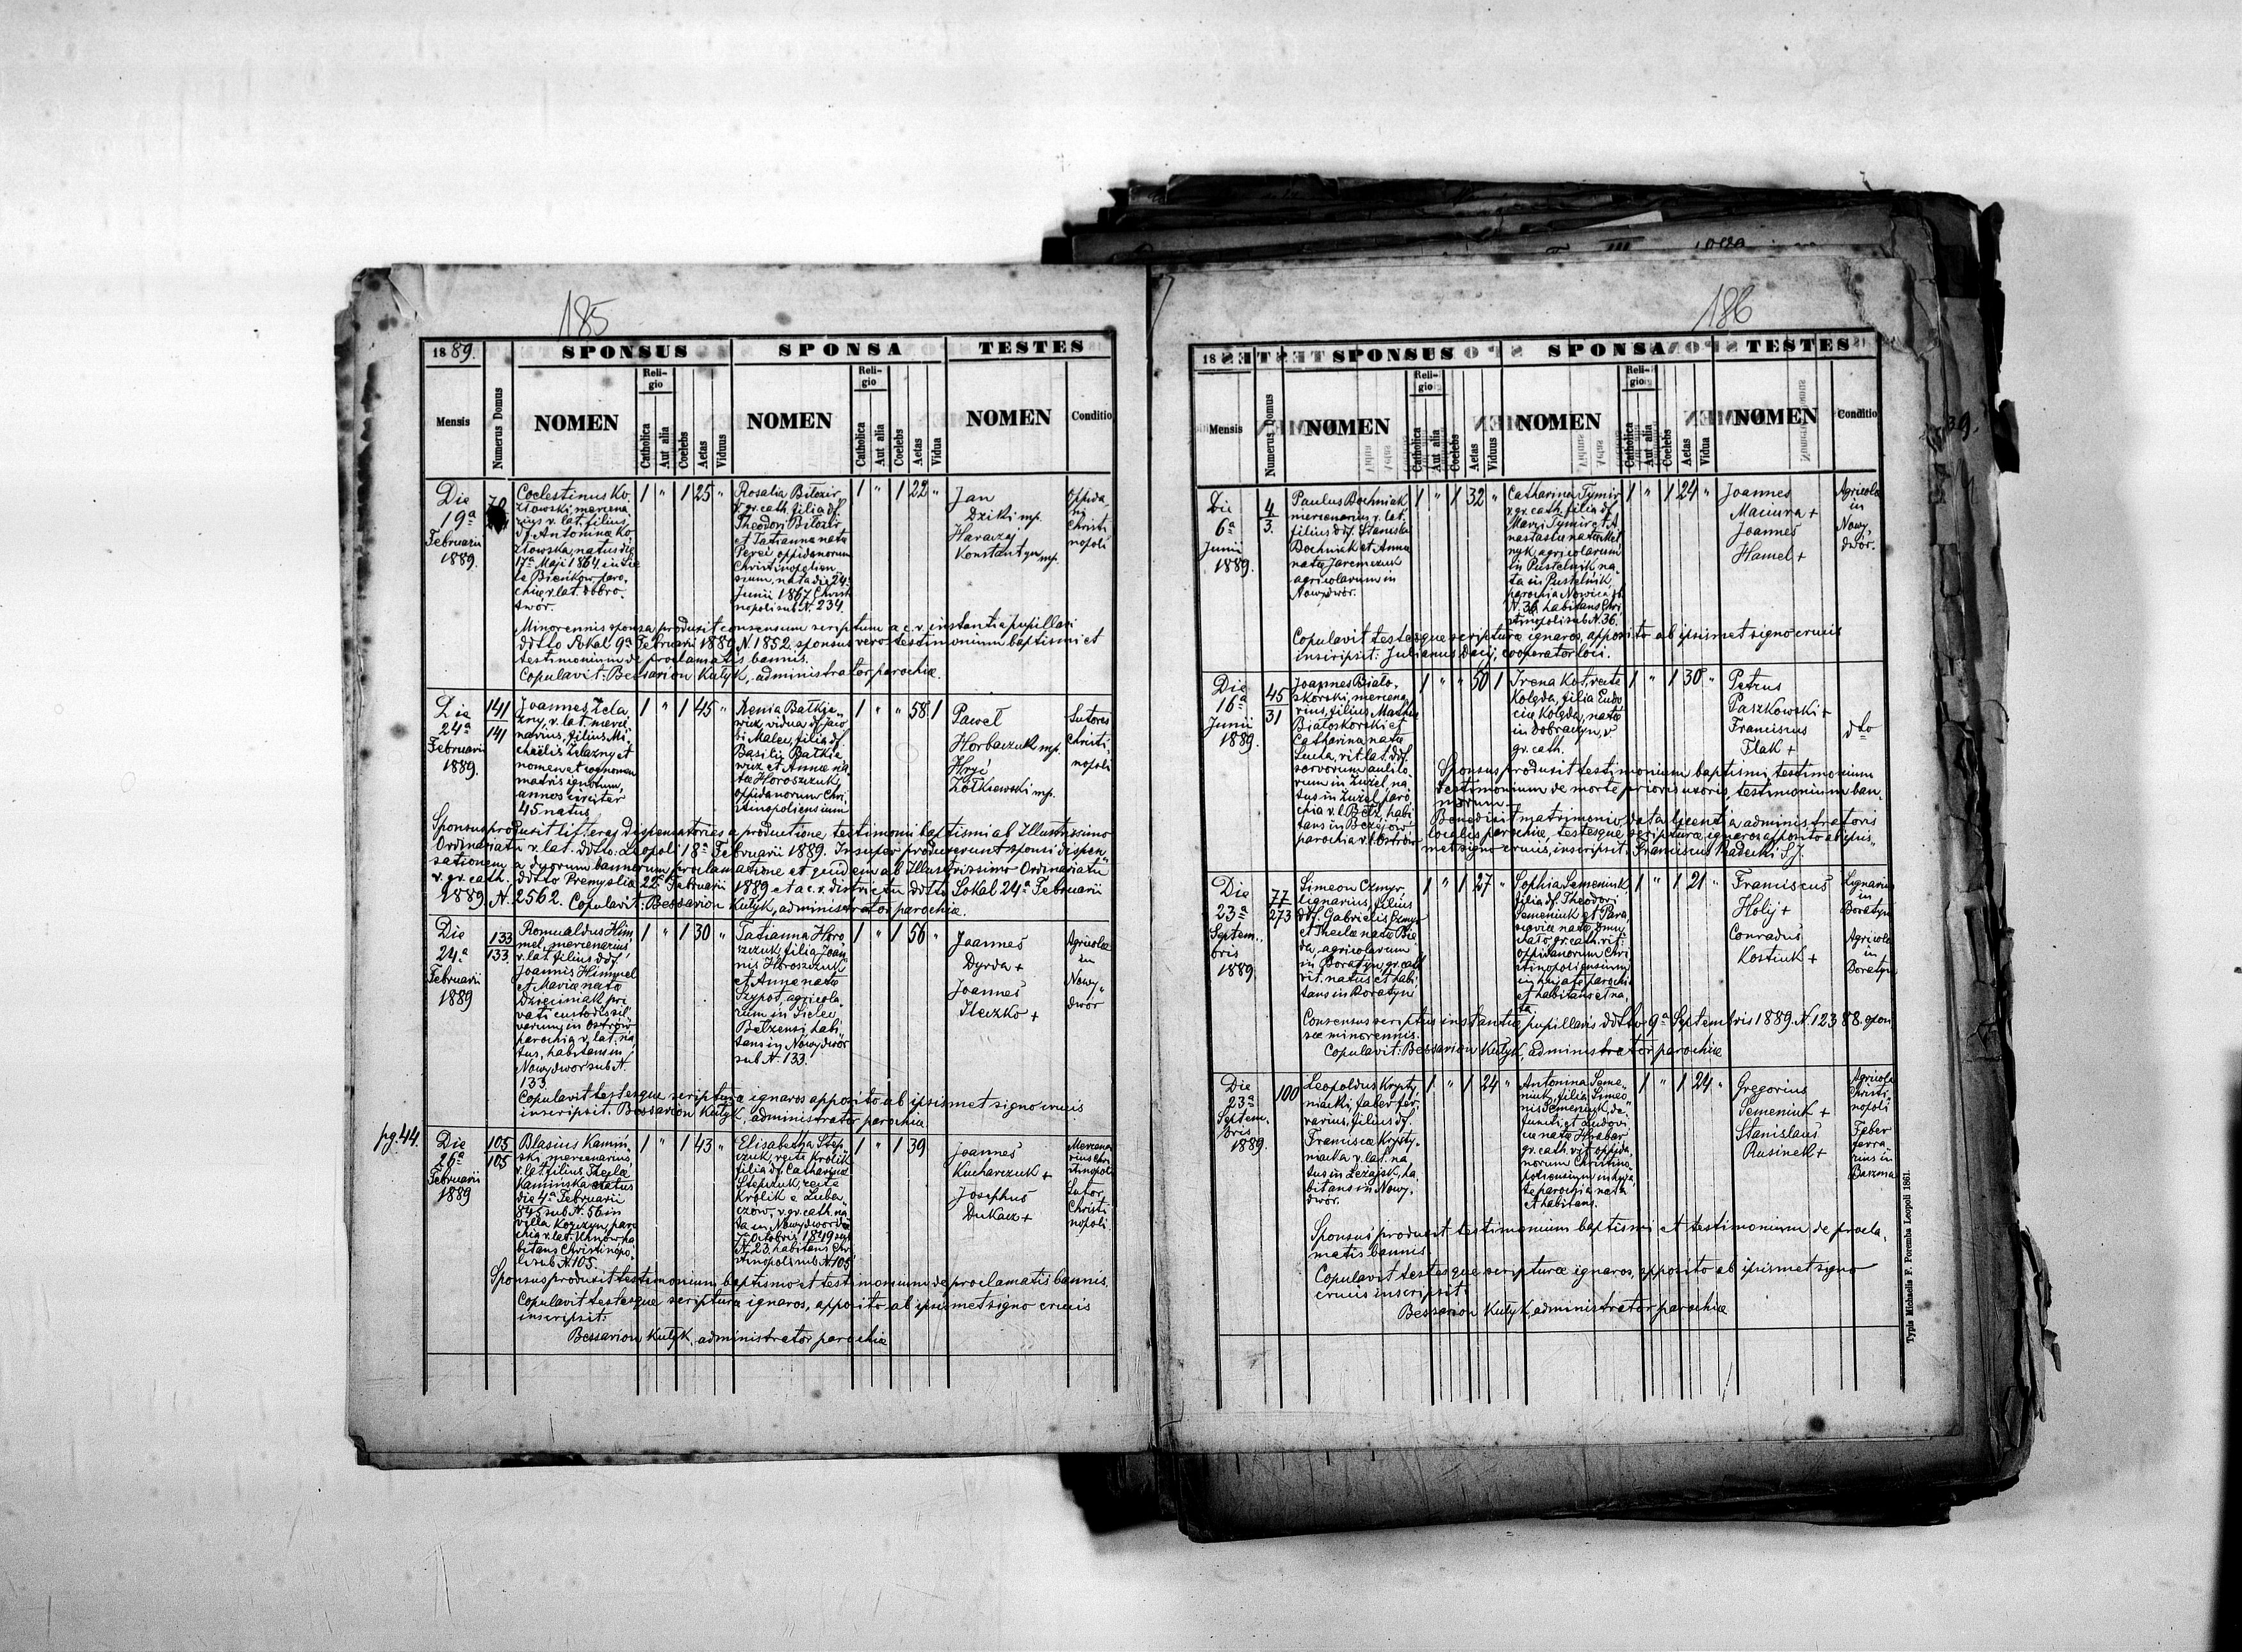 185
1889.
SPONSUS
SPONSA
TESTES
Mensis
Numerus Domus
NOMEN
Religio
Catholica
Aut alia
Coelebs
Aetas
Vidus
NOMEN
Religio
Catholica
Aut alia
Coelebs
Aetas
Vidua
NOMEN
Conditio
Die
19a
Februarii
1889.
Coelestinus Ko-
złowski, mercena
rius r. lat. filius
df. Antoninæ Ko
złowska, natus die
17a Maji 1864 in
le Bieńkow, paro-
chiæ r. lat. Dobro-
twór.
1 " 1 25 "
Rosalia Biłozir
r. gr. cath. filia df.
Theodori Biłozir
et Tatianna nata
Perei oppidanorum
Christinopolien
sium, nata die 24a
Junii 1867 Christi
nopoli sub N. 234.
1 " 1 22 "
Jan
Dziki mp.
Haraczy
Konstantyn mp.
oppida
ni
Christi
nopoli
Minorennis sponsa produxit consensum scriptum a c. r. instantia pupillari
ddtto Sokal 9a Februarii 1889 N. 1852, sponsus vero testimonium baptismi et
testimonium de proclamatis bannis.
Copulavit: Bessarion Kutyk, administrator parochiæ.
Die
24a
Februarii
1889.
141
141
Joannes Zela
zny, r. lat. merce
narius, filius Mi
chaëlis Zelazny et
nomen et cognomen
matris ignotum,
annos circiter
45 natus
1 " 1 45 "
Xenia Batkie-
wicz, vidua df. Jaco
bi Malec, filia df.
Basilii Batkie
wicz et Annæ na
tæ Horoszczuk
oppidanorum Chri-
stinopoliensium
1 " " 58 1
Paweł
Horbaczuk mp.
Hryć
Żółkiewski mp.
Sutores
Christi-
nopoli
Sponsus produxit litteras dispensatorias a productione testimonii baptismi ab Illustrissimo
Ordinariatu r. lat. ddtto. Leopoli 18a Februarii 1889. Insuper produxerunt sponsi dispen
sationem a duorum bannorum proclamatione et quidem ab Illustrissimo Ordinariatu
r. gr. cath. ddtto Premyslia 22a Februarii 1889 et a c. r. districtu ddtto Sokal 24a Februarii
1889 N. 2562. Copulavit: Bessarion Kutyk, administrator parochiæ.
Die
24a
Februarii
1889
133
133
Romualdus Him
mel, mercenarius
r. lat. filius ddf.
Joannis Himmel
et Mariæ natæ
Dzięcimak pri
vati custodis sil
varum in Ostrów
parochia r. lat. na
tus, habitans in
Nowydwor sub N.
133
1 " 1 30 "
Tatianna Horo
szczuk, filia Joan
nis Horoszczuk
et Annæ natæ
Szypot, agricola
rum in Sielec
Bełzensi, habi
tans in Nowydwór
sub N. 133.
1 " 1 56 "
Joannes
Dyrda +
Joannes
Ileczko +
Agricolæ
in
Nowy-
dwór
Copulavit testesque scripturæ ignaros apposito ab ipsismet signo crucis
inscripsit. Bessarion Kutyk, administrator parochiæ
pg. 44.
Die
26a
Februarii
1889
105
105
Blasius Kamiń
ski, mercenarius
r. lat. filius Theclæ
Kamińska natus
die 4a Februarii
845 sub N. 56 in
villa Korczyn, paro
chia r. lat. Uhnów, ha
bitans Christinopo
li sub N. 105.
1 " 1 43 "
Elisabetha Step
czuk, recte Krolik
filia df. Catharinæ
Stepczuk, recte
Krolik e Luba
czów, r. gr. cath. na
ta in Nowydwor die
7a Octobris 1849 sub
N. 23, habitans Chri
stinopoli sub N. 105
1 " 1 39
Joannes
Kucharczuk +
Josephus
Dukacz +
Mercena
rius Chri
stinopoli
Sutor
Christi
nopoli
Sponsus produxit testimonium baptismi et testimonium de proclamatis bannis.
Copulavit testesque scripturæ ignaros, apposito ab ipsismet signo crucis
inscripsit:
Bessarion Kutyk, administrator parochiæ
186
18
SPONSUS
SPONSA
TESTES
Mensis
Numerus Domus
NOMEN
Religio
Catholica
Aut alia
Coelebs
Aetas
Vidus
NOMEN
Religio
Catholica
Aut alia
Coelebs
Aetas
Vidua
NOMEN
Conditio
Die
6a
Junii
1889.
4
3.
Paulus Bochniak
mercenarius r. lat.
filius ddf. Stanislai
Bochniak et Annæ
natæ Jaremczuk
agricolarum in
Nowydwór.
1 " 1 32 "
Catharina Tymir
r. gr. cath. filia df.
Marci Tymir et A
nastasiæ natæ Mel
nyk, agricolarum
in Pustelnik na
ta in Pustelnik
parochia Nowica sub
N. 36, habitans Chri
stinopoli sub N. 36.
1 " 1 24 "
Joannes
Maciura +
Joannes
Hamel +
Agricolæ
in
Nowy
dwór.
Copulavit testesque scripturæ ignaros, apposito ab ipsismet signo crucis
inscripsit: Julianus Dacij, cooperator loci.
Die
16a
Junii
1889.
45
31
Joannes Biało-
skórski, mercena
rius, filius Mathiæ
Białoskorski et
Catharina natæ
Lucha, rit. lat. ddf.
servorum aulico-
rum in Żużel, na
tus in Żużel, paro
chia r. l. Bełz, habi
tans in Bezejów
parochia r. l. Ostrów
1 " " 50 1
Irena Kot, recte
Kolęda, filia Eudo
ciæ Kolęda, nata
in Dobraczyn, r.
gr. cath.
1 " 1 30 "
Petrus
Paszkowski +
Franciscus
Flak +
dto
Sponsus produxit testimonium baptismi, testimonium
testimonium de morte prioris uxoris, testimonium ban-
norum.
Benedixit matrimonio, data licentia administratoris
localis parochiæ, testesque scripturæ ignaros apposito ab ipsis-
met signo crucis, inscripsit: Franciscus Radecki S.J.
Die
23a
Septem-
bris
1889
77
273
Simeon Czmyr,
lignarius, filius
ddf. Gabrielis Czmyr
et Theclæ natæ Bie
da, agricolarum
in Boratyn, gr. cath
rit. natus et habi
tans in Boratyn
1 " 1 27 "
Sophia Semeniuk
filia df. Theodori
Semeniuk et Para
sceviæ natæ
gr. cath. rit.
oppidanorum Chri
stinopoliensium
in hujate parochia
et habitans et na
ta
1 " 1 21 "
Franciscus
Holij +
Conradus
Kostiuk +
Lignarius
in
Boratyn
Agricola
in
Boratyn
Consensus scriptus instantiæ pupillaris ddtto 9a Septembris 1889. N. 12388. spon
sæ minorennis.
Copulavit: Bessarion Kutyk, administrator parochiæ
Die
23a
Septem-
bris
1889.
100
Leopoldus Krysty
niacki, faber fer
rarius, filius df.
Franciscæ Krysty-
niacka r. lat. na
tus in Leżajsk, ha
bitans in Nowy-
dwór.
1 " 1 24 "
Antonina Seme-
niuk, filia Simeo
nis Semeniuk, de-
functi et Ludovi
cæ natæ Hrabar
gr. cath. rit. oppida
norum Christino
poliensium in huja
te parochia nata
et habitans.
1 " 1 24 "
Gregorius
Semeniuk +
Stanislaus
Rusinek +
Agricola
Christi-
nopoli
Faber
ferra
rius in
Sponsus produxit testimonium baptismi et testimonium de procla-
matis bannis.
Copulavit testesque scripturæ ignaros, apposito ab ipsismet signo
crucis inscripsit:
Bessarion Kutyk, administrator parochiæ
Typis Michaelis F. Poremba Leopoli 1861.